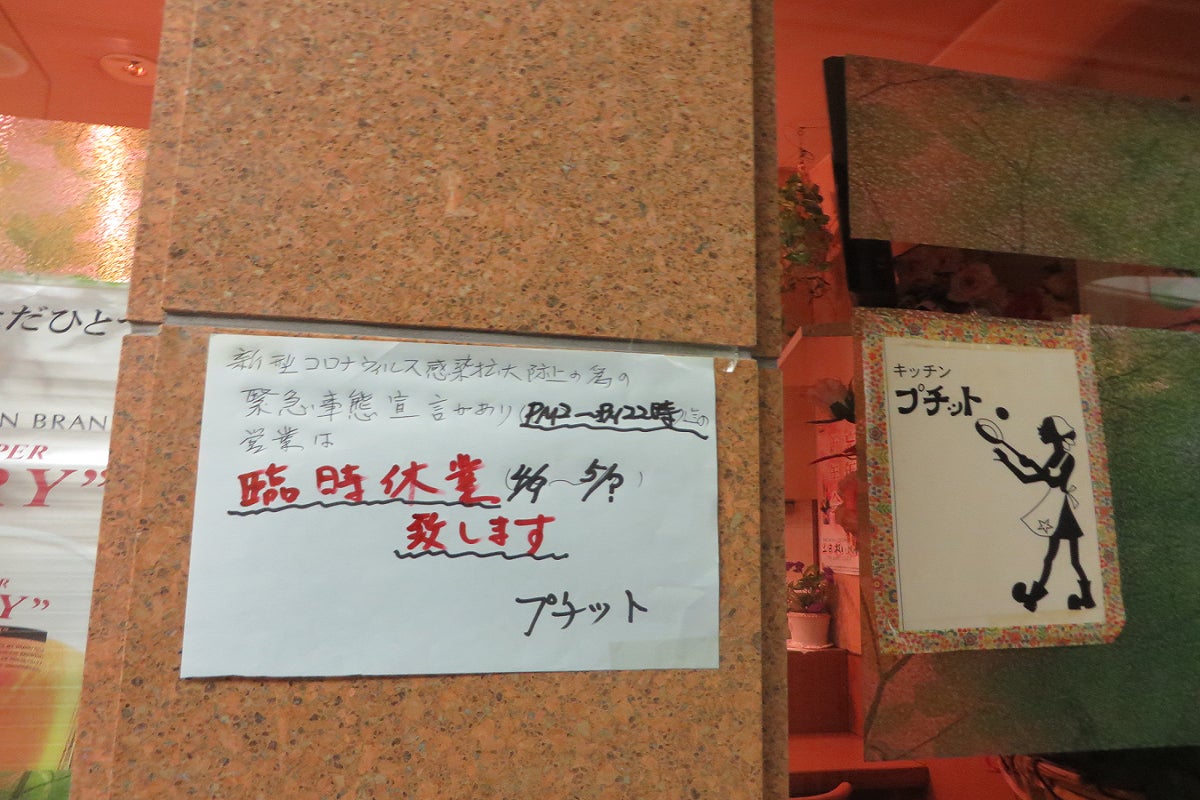 だひと
N BRAN
PER
RY”
RY”
新型コロナウィルス感染拡大防止の為の
緊急事態宣言があり(PM2〜PM22時迄の
営業は
臨時休業(4/9〜5/?)
致します
プチット
キッチン
プチット